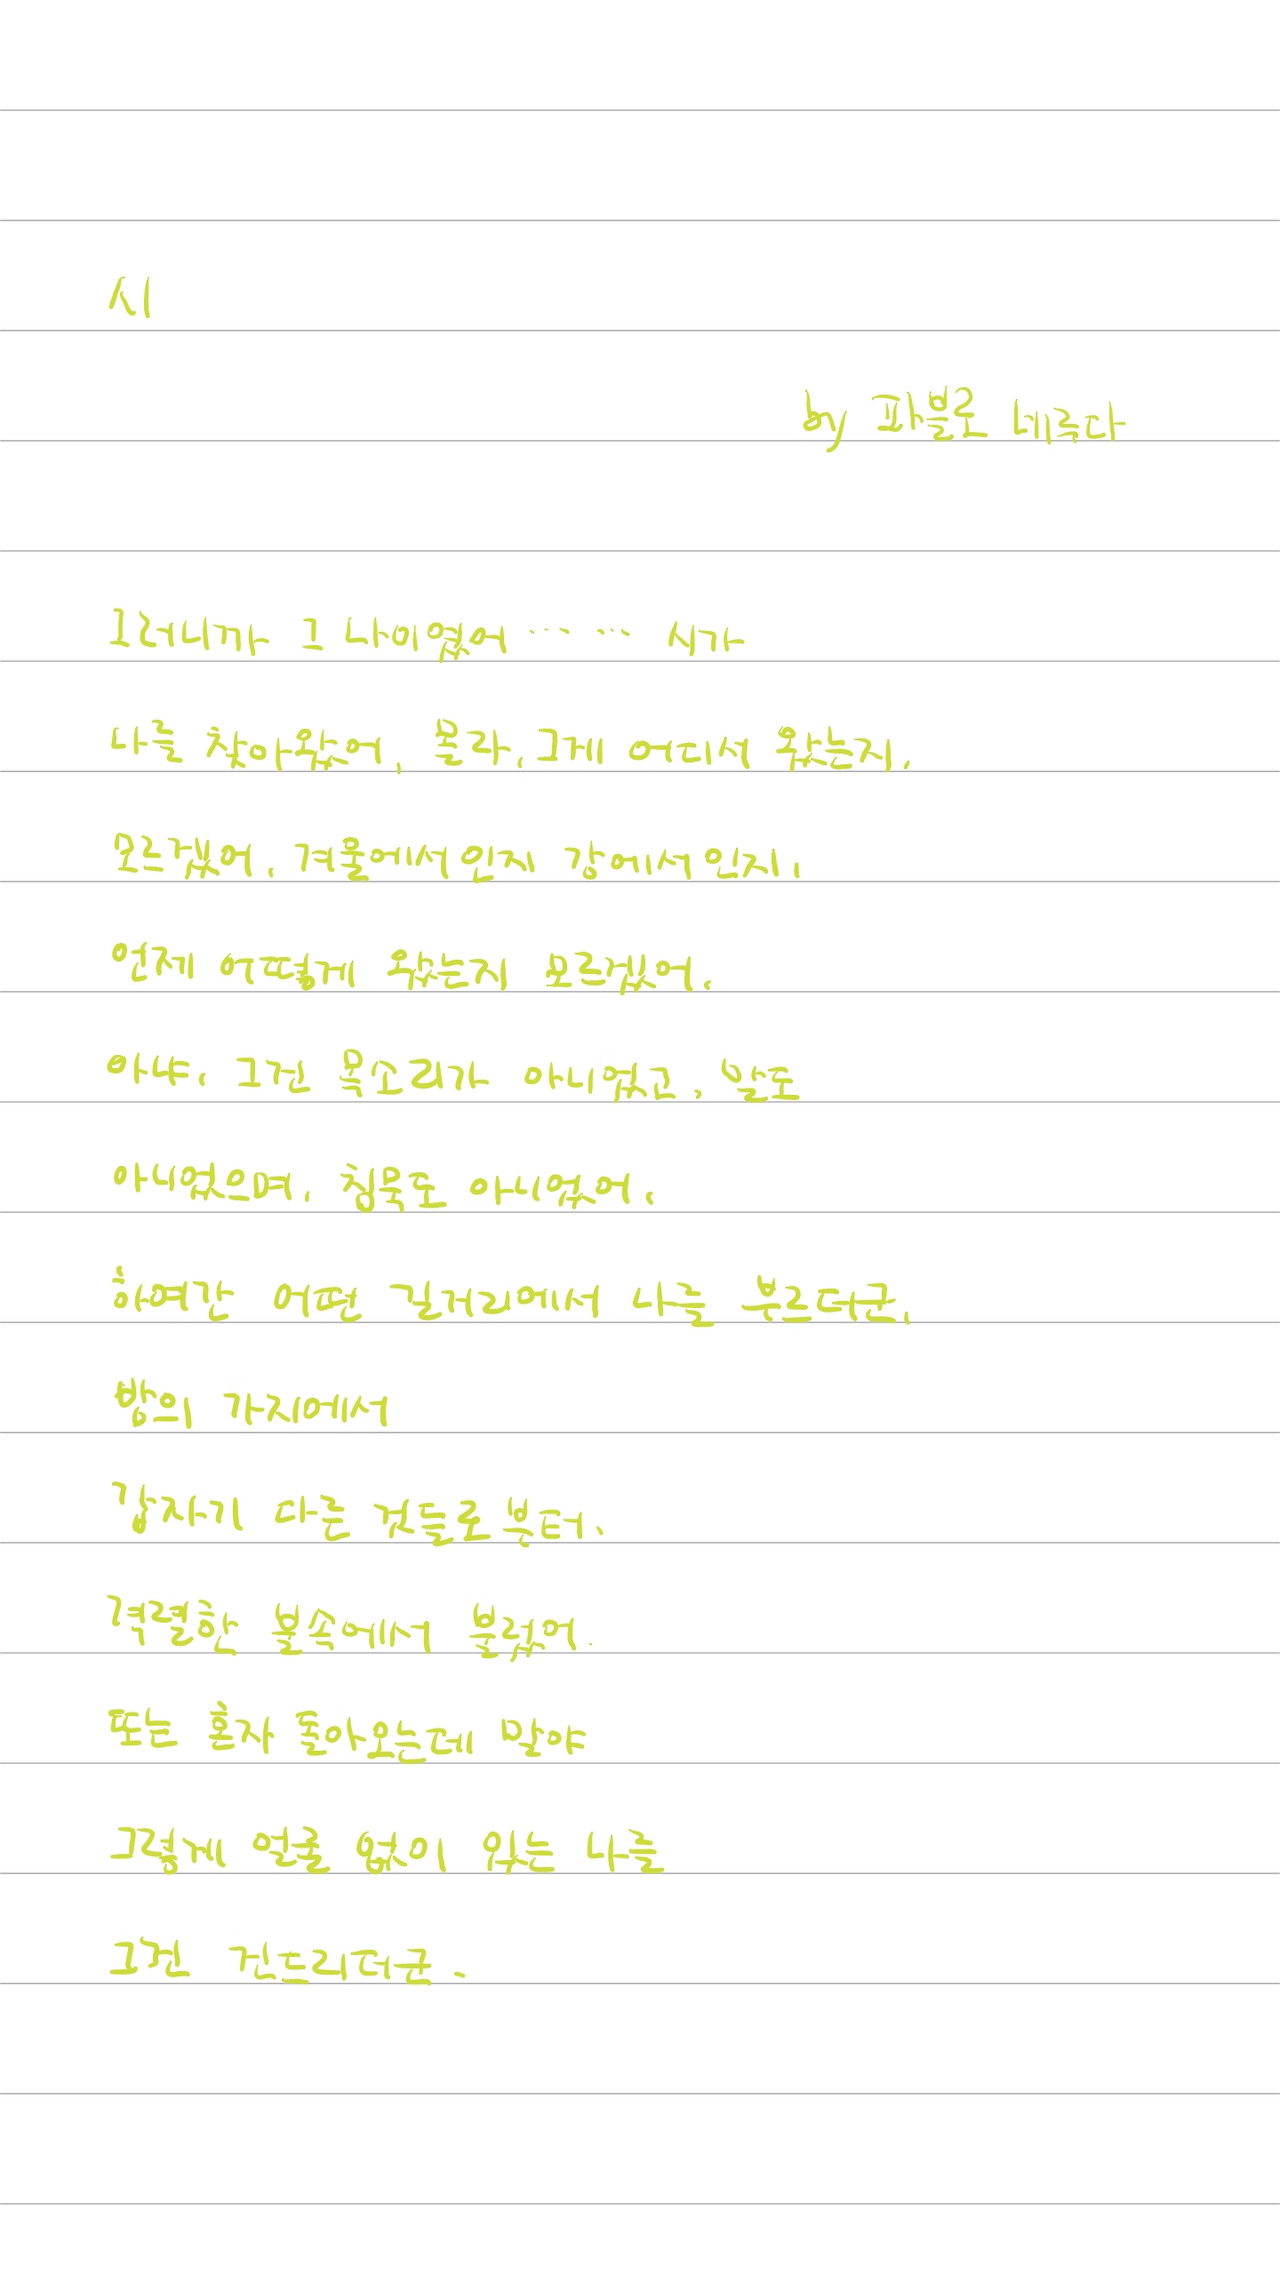 시
by 파블로 네루다
그러니까 그 나이였어…… 시가
나를 찾아왔어, 몰라, 그게 어디서 왔는지,
모르겠어, 겨울에서인지 강에서인지,
언제 어떻게 왔는지 모르겠어,
아냐, 그건 목소리가 아니었고, 말도
아니었으며, 침묵도 아니었어,
하여간 어떤 길거리에서 나를 부르더군,
밤의 가지에서
갑자기 다른 것들로부터,
격렬한 불속에서 불렀어.
또는 혼자 돌아오는데 말야
그렇게 얼굴 없이 있는 나를
그건 건드리더군.